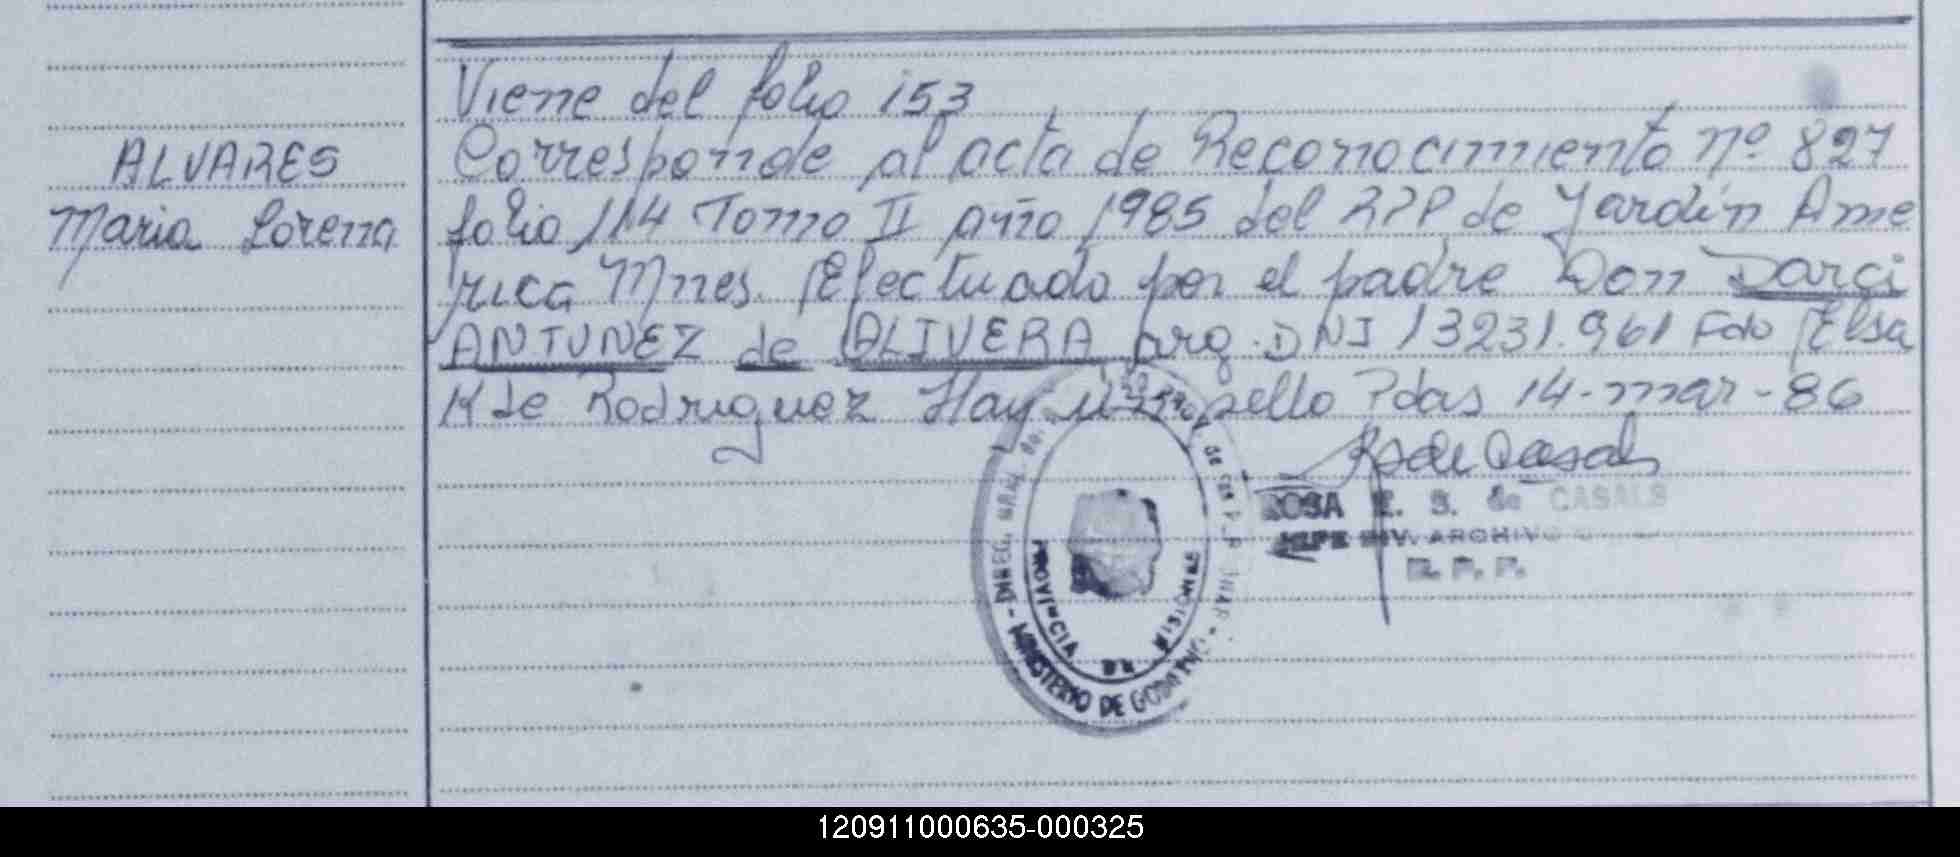 Viene del folio 153
ALVARES
Corresponde al acta de Reconocimiento nº 827
Maria Lorena
folio 114 Tomo II año 1985 del RPP de Jardín Ame
rica Mnes. Efectuado por el padre Don Darci
ANTUNEZ de OLIVERA arg. DNI 13231.961 Fdo Elsa
K de Rodriguez Hay un sello Pdas 14-mar-86
R S de Casals
ROSA E. S. de CASALS
JEFE DIV. ARCHIVO
R. P. P.
DIREC. GRAL. de
PROVINCIA DE MISIONES
MINISTERIO DE GOBIERNO
120911000635-000325